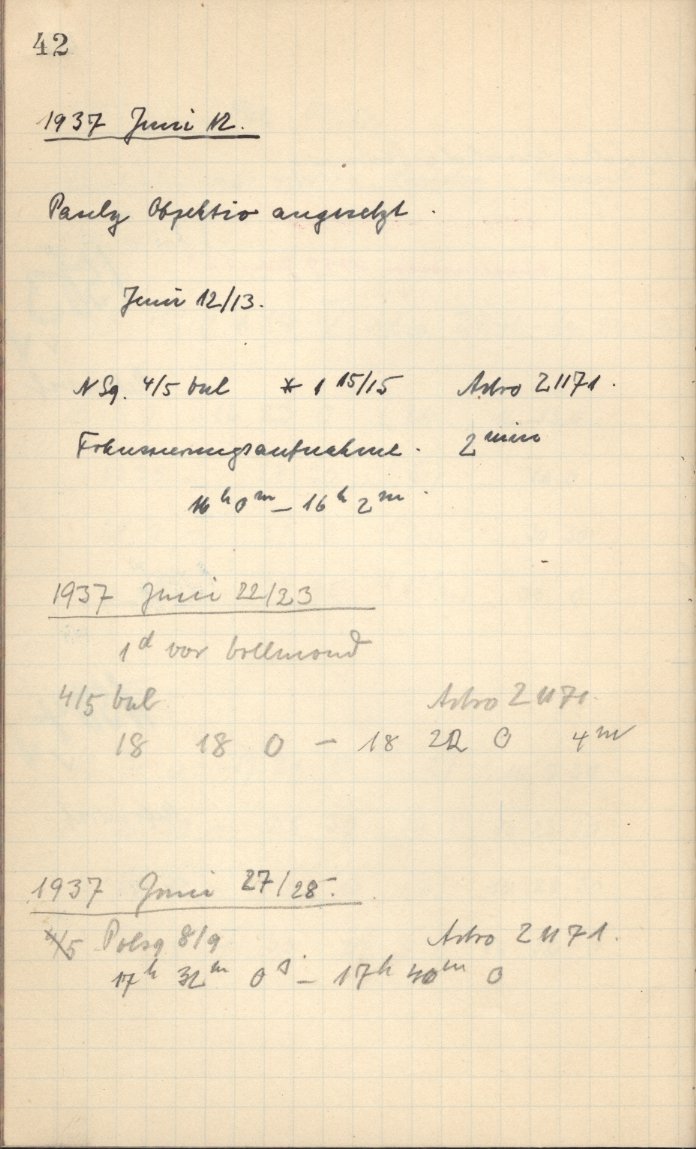 42
1937 Juni 12.
Pauly Objektiv angesetzt.
Juni 12/13.
N Sq. 4/5 bul * 1 15/15 Astro Z 1171.
Fokussierungsaufnahme. 2 min
16 h 0 m – 16 h 2 m.
1937 Juni 22/23
1 d vor Vollmond
4/5 bul Astro Z 1171.
18 18 0 – 18 22 0 4 m
1937 Juni 27/28.
Polsq 8/9 Astro Z 1171.
17 h 32 m 0 s – 17 h 40 m 0